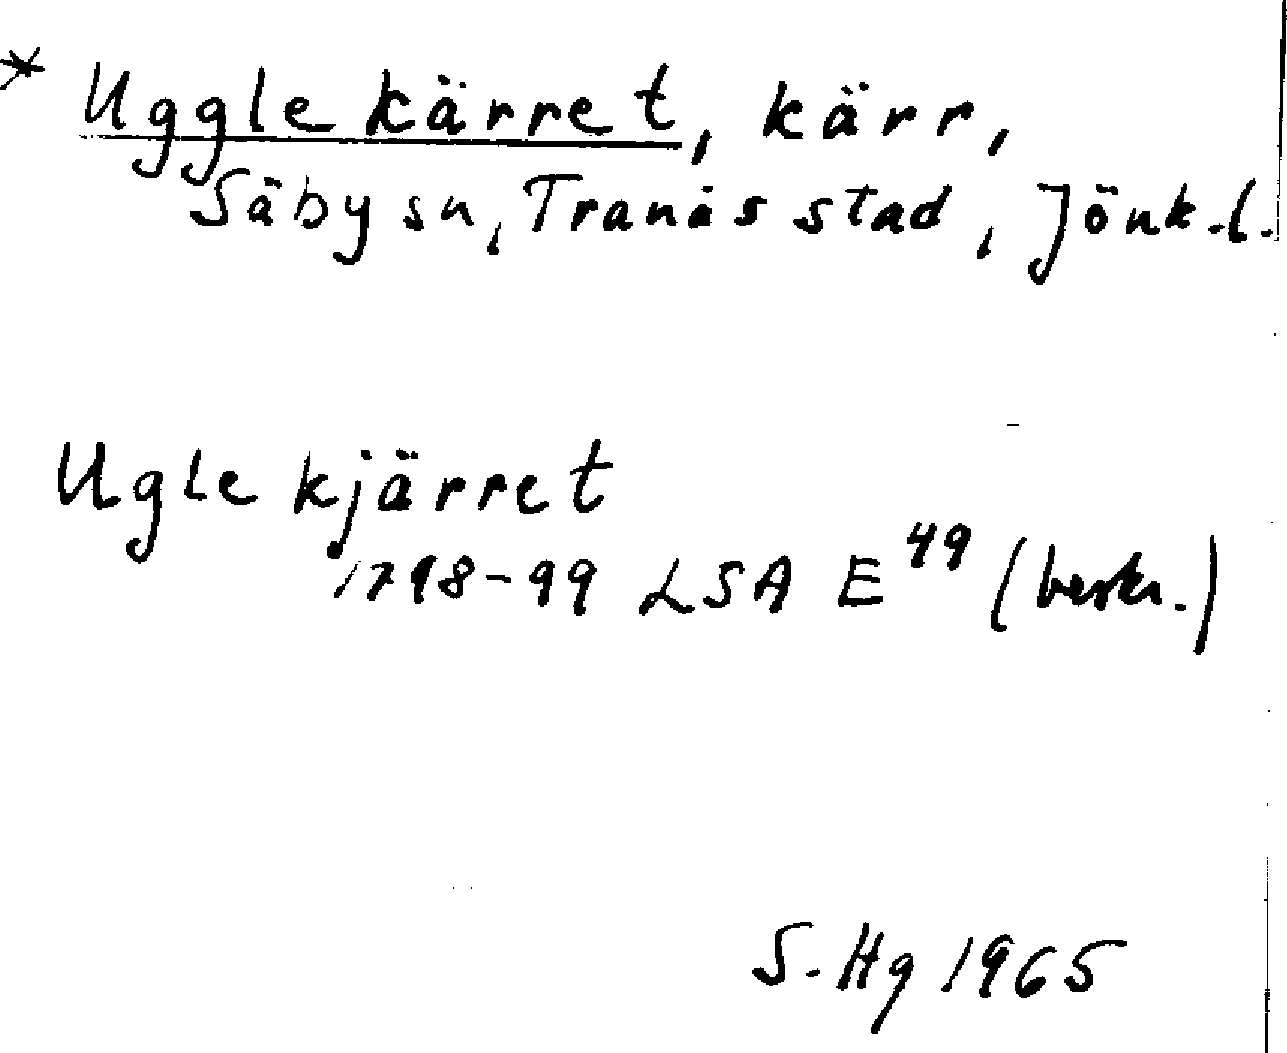 * Ugglekärret, kärr,
Säby sn, Tranås stad, Jönk.l.
Ugle kjärret
1798-99 LSA E 49 (beskr.)
S-Hg 1965